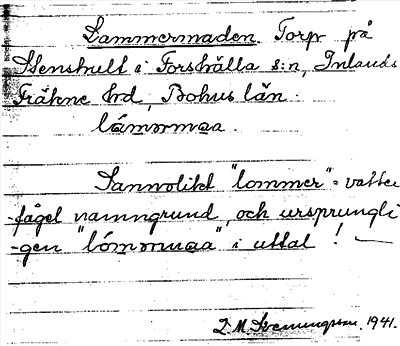 Lammermaden. Torp på
Stenshult i Forshälla s:n, Inlands
Fräkne hrd, Bohus län.
lómmmaa.
Sannolikt "lommer" = vatten
-fågel namngrund, och ursprungli
-gen "lómmmaa" i uttal!
1941.